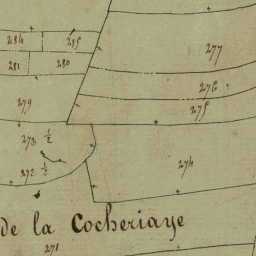 284 285
277
281 280
276
279 275
273 ½
274
272 ½
de la Cocheriaye
271